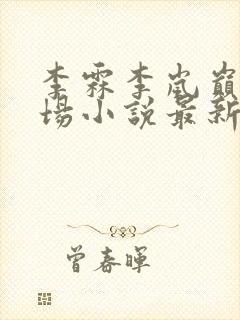 李霖李嵐巔
場小說最新
曾春暉